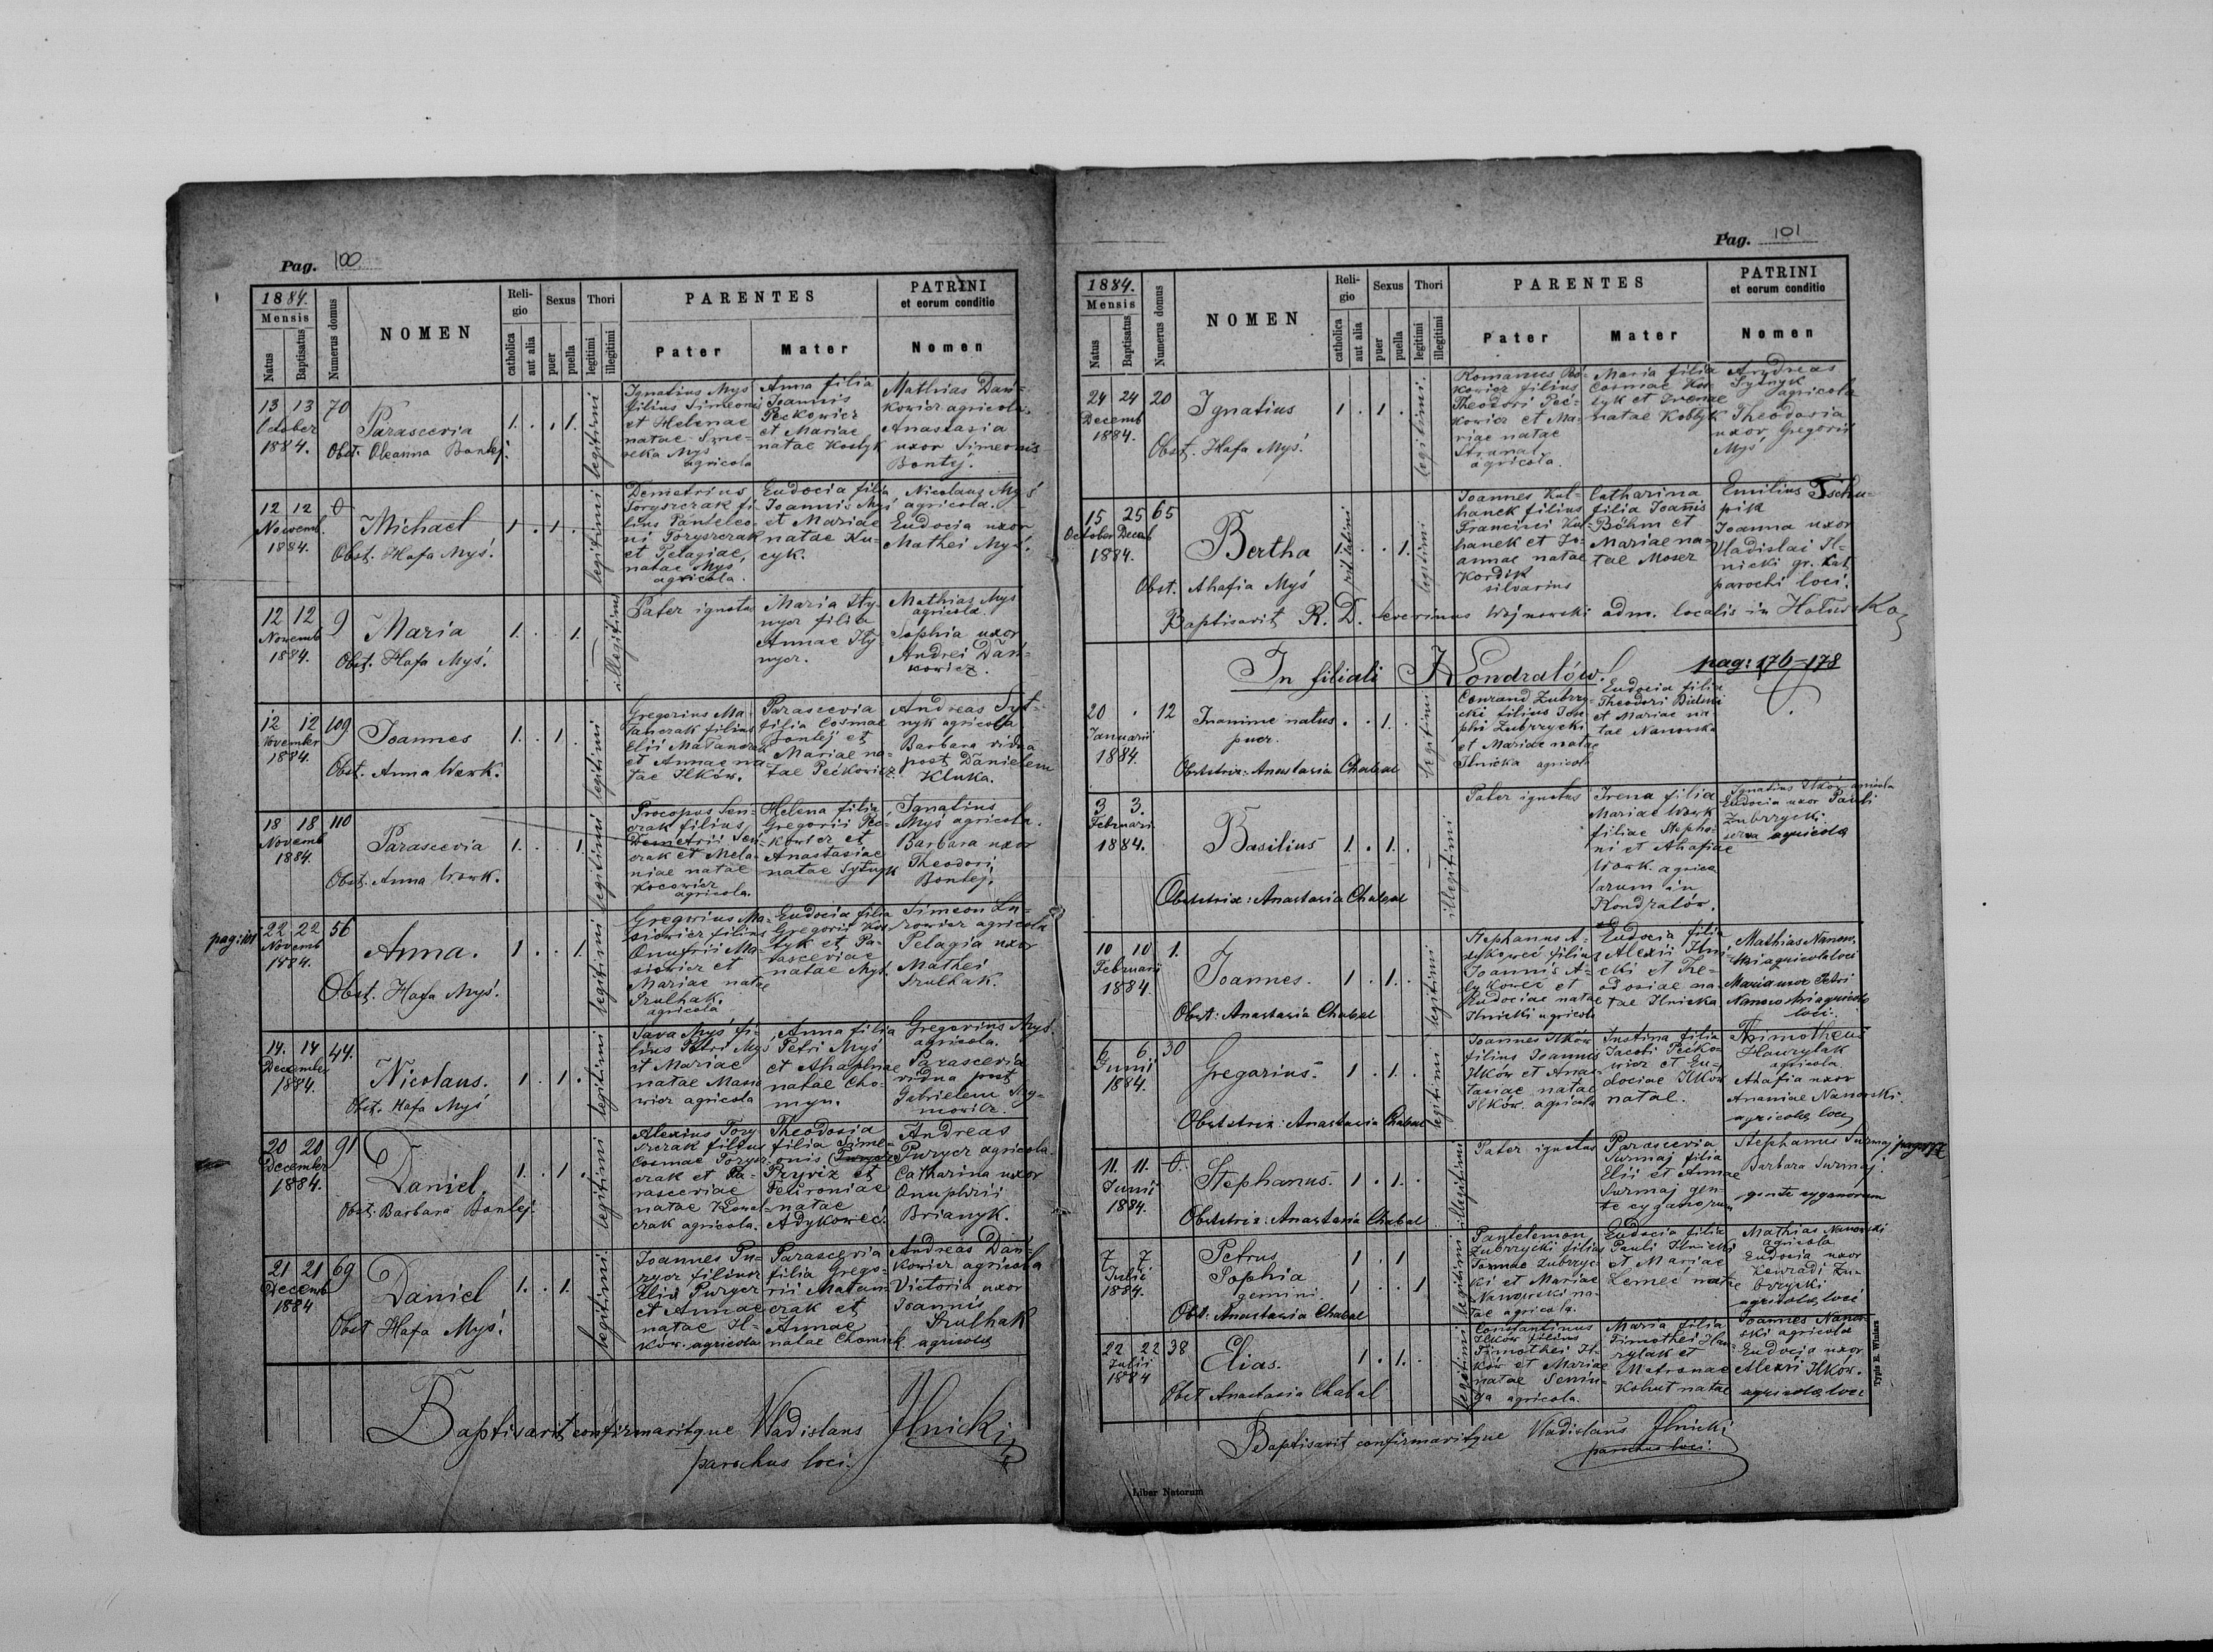 Pag. 100
1884.
Mensis
Natus
Baptisatus
Numerus domus
NOMEN
Religio
catholica
aut alia
Sexus
puer
puella
Thori
legitimi
illegitimi
PARENTES
Pater
Mater
PATRINI
et eorum conditio
Nomen
13 13 70
October
1884.
Parascevia
Obst. Oleanna Bontej.
1. . . 1.
legitimi
Ignatius Myś
filius Simeonis
et Helenae
natae
Myś
agricola
Anna filia
Joannis
Pećkowicz
et Mariae
natae Kostyk
Mathias Dań-
kowicz agricola.
Anastasia
uxor Simeonis
Bontej.
12 12 0
Novemb.
1884.
Michael
Obst. Hafa Myś.
1 . 1 .
legitimi
Demetrius
Toryszczak fi-
lius Panteleo-
ni Toryszczak
et Pelagiae,
natae Myś
agricola.
Eudocia filia
Joannis Myś
et Mariae
natae Ku-
cyk.
Nicolaus Myś
agricola.
Eudocia uxor
Mathei Myś.
12 12 9
Novemb
1884.
Maria
Obst. Hafa Myś.
1. . . 1.
illegitimi
Pater ignotus
Maria Hy-
nycz filia
Annae Hy-
nycz.
Mathias Myś
agricola.
Sophia uxor
Andrei Dań-
kowicz.
12 12 109
November
1884.
Joannes
Obst. Anna Work.
1. . 1 .
legitimi
Gregorius Ma-
tanczak filius
Elii Matanczak
et Annae na-
tae Ilków.
Parascevia
filia Cosmae
Bontej et
Mariae na-
tae Pećkowicz
Andreas Syt-
nyk agricola
Barbara vidua
post Danielem
Kluka.
18 18 110
Novemb
1884.
Parascevia
Obst. Anna Work.
1. . . 1
legitimi
Procopus Sen-
czak filius
Demetrii Sen-
czak et Mela-
niae natae
Kocowicz
agricola.
Helena filia
Gregorii Peć-
kowicz et
Anastasiae
natae Sytnyk
Ignatius
Myś agricola.
Barbara uxor
Theodori
Bontej.
pag: 101
22 22 56
Novemb
1884.
Anna.
Obst. Hafa Myś.
1 . . 1.
legitimi
Gregorius Ma-
siowicz filius
Onufrii Ma-
siowicz et
Mariae natae
Szulhak.
agricola
Eudocia filia
Gregorii Kos-
tyk et Pa-
rasceviae
natae Myś.
Simeon
agricola
Pelagia uxor
Mathei
Szulhak.
14. 14 44.
December
1884.
Nicolaus.
Obst. Hafa Myś
1 . 1 .
legitimi
Sava Myś fi-
lius Petri Myś
et Mariae
natae
agricola
Anna filia
Petri Myś
et Ahaphiae
natae Cho-
myn.
Gregorius Myś.
agricola.
Parascevia
vidua post
Gabrielem
20 20 91
December
1884.
Daniel.
Obst. Barbara Bontej.
1. . 1 .
legitimi
Alexius Tory-
szczak filius
Cosmae Torysz-
czak et Pa-
rasceviae
natae Kowal-
czak agricola.
Theodosia
filia Sime-
onis
Pryviz et
Petroniae
natae
Adykowec.
Andreas
Purycz agricola.
Catharina uxor
Onuphrii
Brianyk.
21 21 69
Decemb
1884
Daniel
Obst. Hafa Myś.
1. . 1.
legitimi.
Joannes Pu-
rycz filius
Elii Purycz
et Annae
natae Il-
ków. agricola
Parascevia
filia Grego-
rii Matan-
czak et
Annae
natae Chomick
Andreas Dań-
kowicz agricola
Victoria uxor
Joannis
Szulhak
agricola
Baptisavit confirmavitque Vladislaus Ilnicki
parochus loci.
Pag. 101
1884.
Mensis
Natus
Baptisatus
Numerus domus
NOMEN
Religio
catholica
aut alia
Sexus
puer
puella
Thori
legitimi
illegitimi
PARENTES
Pater
Mater
PATRINI
et eorum conditio
Nomen
24 24 20
Decemb
1884.
Ignatius
Obst. Hafa Myś.
1 . 1 .
legitimi.
Romanus Peć-
kowicz filius
Theodori Peć-
kowicz et Ma-
riae natae
agricola.
Maria filia
Cosmae Kos-
tyk et Irenae
natae Kobtyk
Andreas
Sytnyk
agricola
Theodosia
uxor Gregorii
Myś
15 25 65
October Decemb
1884.
Bertha
Obst. Ahafia Myś
1. . . 1.
rit latini
legitimi
Joannes Kul-
hanek filius
Francisci Kul-
hanek et Jo-
annae natae
Kordik
silvarius
Catharina
filia Joannis
Böhm et
Mariae na-
tae Moser
Emilius Tschu-
pik
Joanna uxor
Vladislai Il-
nicki gr. kat.
parochi loci.
Baptisavit R. D. Severinus Wojnowski adm. localis in
In filiali Kondratów.
pag: 176-178
20 . 12
Januarii
1884.
Inanime natus
puer.
Obstetrix: Anastasia Chabal
. . 1 .
legitimi
Conrand Zubrzy-
cki filius Jose-
phi Zubrzycki
et Mariae natae
Ilnicka agricola
Eudocia filia
Theodori
et Mariae na-
tae Nanowska
3 3.
Februarii
1884.
Basilius
Obstetrix: Anastasia Chabal
1 . 1 .
illegitimi
Pater ignotus
Irena filia
Mariae Work
filiae Stepha-
ni et Ahafiae
Work agrico-
larum in
Kondratów.
Ignatius Ilków agricola
Eudocia uxor Pauli
Zubrzycki.
agricola
10 10 1.
Februarii
1884.
Joannes.
Obst: Anastasia Chabal
1 . 1 .
legitimi
Stephanus A-
dykoweć filius
Joannis A-
dykoweć et
Eudociae natae
Ilnicki agricola
Eudocia filia
Alexii Ilni-
cki et The-
odosiae na-
tae Ilnicka
Mathias Nanow-
ski agricola loci
Maria uxor Petri
Nanowski agricola
loci.
6 6. 30
Junii
1884.
Gregorius.
Obstetrix: Anastasia Chabal
1 . 1 .
legitimi
Joannes Ilków
filius Joannis
Ilków et Anas-
tasiae natae
Ilków. agricola
Justina filia
Jacobi Pećko-
wicz et Eu-
dociae Ilków
natae.
Thimotheus
Hawrylak
agricola.
Ahafia uxor
Ananiae Nanowski.
agricola loci
11. 11. 0.
Junii
1884.
Stephanus.
Obstetrix: Anastasia Chabal
1 . 1 .
illegitimi
Pater ignotus
Parascevia
Surmaj filia
Elii et Annae
Surmaj gen-
te cyganorum
Stephanus Surmaj
Barbara Surmaj.
gente cyganorum
7 7
Julii
1884.
Petrus
Sophia
gemini.
Obst: Anastasia Chabal
1 . 1
1 . . 1
legitimi
Pantelemon
Zubrzycki filius
Joannae Zubrzyc-
ki et Mariae
Nanowski na-
tae agricola.
Eudocia filia
Pauli Ilnicki
et Mariae
Lemec natae
Mathias Nanowski
agricola
Eudocia uxor
Conradi Zu-
brzycki
agricola loci
22 22 38
Julii
1884
Elias.
Obst Anastasia Chabal
1 . 1. .
legitimi
Constantinus
Ilków filius
Timothei Il-
ków et Mariae
natae
agricola.
Maria filia
Timothei Haw-
rylak et
Matronae
Kohut natae
Joannes Nanow-
ski agricola
Eudocia uxor
Alexii Ilków.
agricola loci
Baptisavit confirmavitque Vladislaus Ilnicki
parochus loci.
Liber Natorum
Typis E. Winiarz